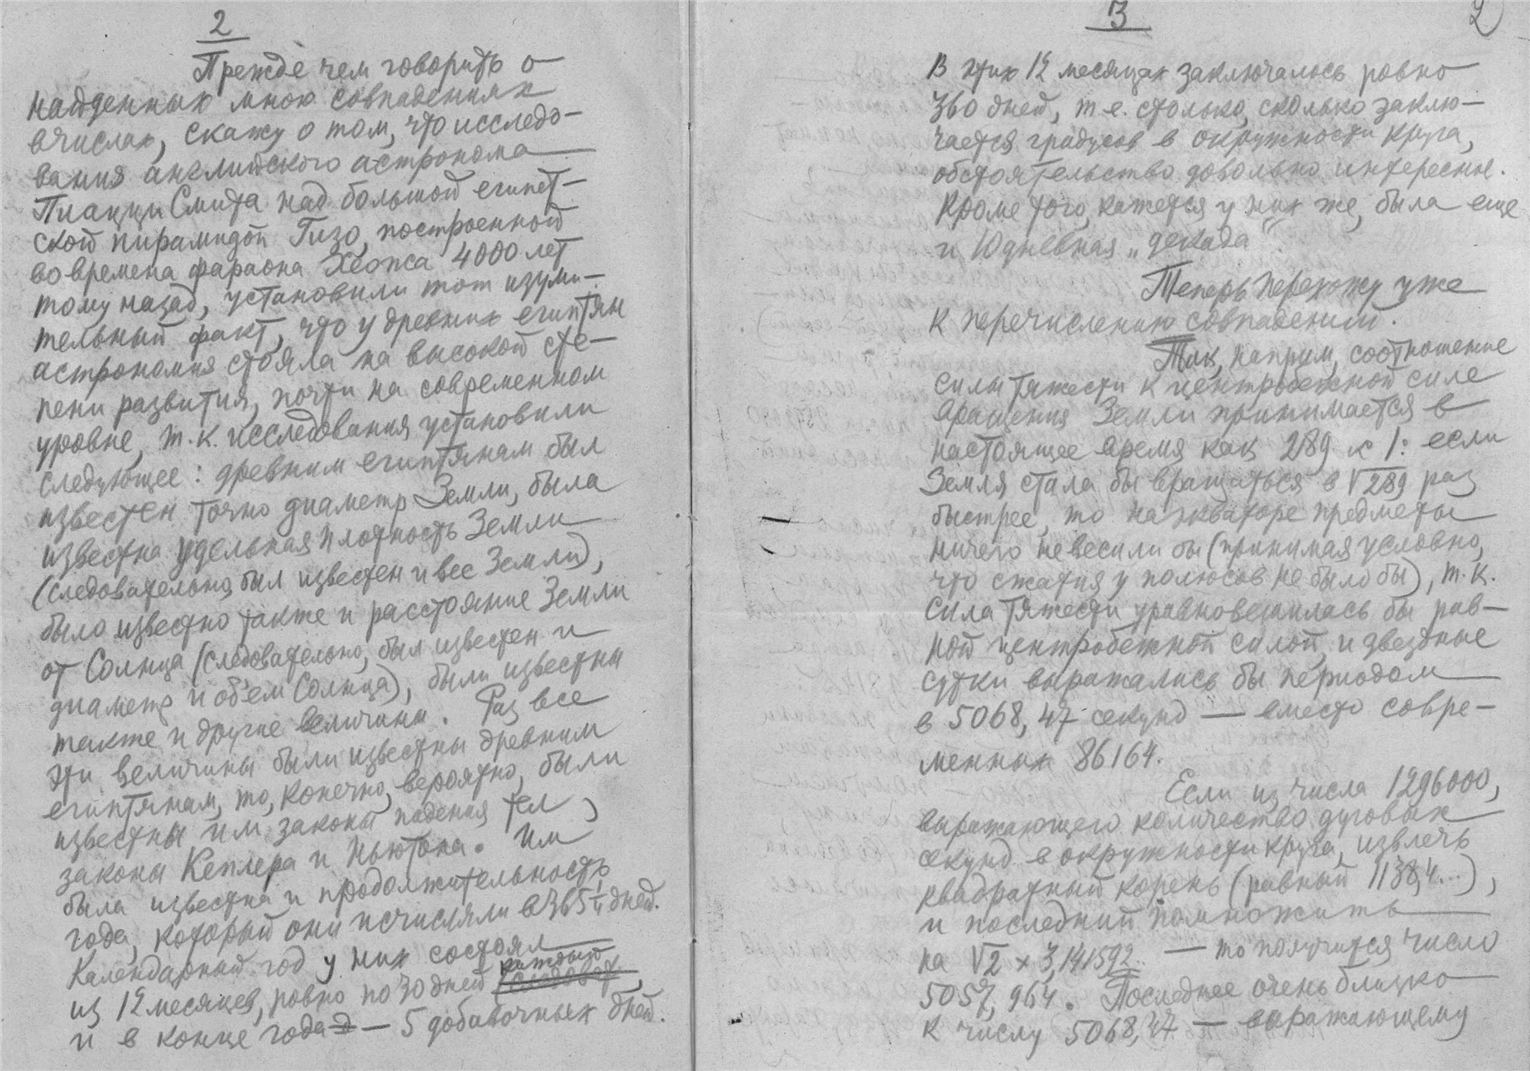 2
Прежде чем говорить о
найденных мною совпадениях
в числах, скажу о том, что исследо-
вания английского астронома
Пиацци Смита над большой египет-
ской пирамидой Гизо, построенной
во времена фараона Хеопса 4000 лет
тому назад, установили тот изуми-
тельный факт, что у древних египтян
астрономия стояла на высокой сте-
пени развития, почти на современном
уровне, т.к. исследования установили
следующее: древним египтянам был
известен точно диаметр Земли, была
известна удельная плотность Земли
(следовательно, был известен и вес Земли),
было известно также и расстояние Земли
от Солнца (следовательно, был известен и
диаметр и объем Солнца), были известны
также и другие величины. Раз все
эти величины были известны древним
египтянам, то, конечно, вероятно, были
известны им законы падения тел,
законы Кеплера и Ньютона. Им
была известна и продолжительность
года, который они исчисляли в 365 1/4 дней.
Календарный год у них состоял
из 12 месяцев, ровно по 30 дней каждый,
и в конце года — 5 добавочных дней.
3
2
В этих 12 месяцах заключалось ровно
360 дней, т.е. столько, сколько заклю-
чается градусов в окружности круга,
обстоятельство довольно интересное.
Кроме того, кажется у них же, была еще
и 10 дневная „декада“.
Теперь перехожу уже
к перечислению совпадений.
Так, наприм, соотношение
силы тяжести к центробежной силе
вращения Земли принимается в
настоящее время как 289 к 1: если
Земля стала бы вращаться в √289 раз
быстрее, то на экваторе предметы
ничего не весили бы (принимая условно,
что сжатия у полюсов не было бы), т.к.
сила тяжести уравновешилась бы рав-
ной центробежной силой, и звездные
сутки выражались бы периодом
в 5068,47 секунд — вместо совре-
менных 86164.
Если из числа 1296000,
выражающего количество дуговых
секунд в окружности круга, извлечь
квадратный корень (равный 1138,4...),
и последний помножить
на √2 × 3,141592.. — то получится число
5057,964. Последнее очень близко
к числу 5068,47 — выражающему